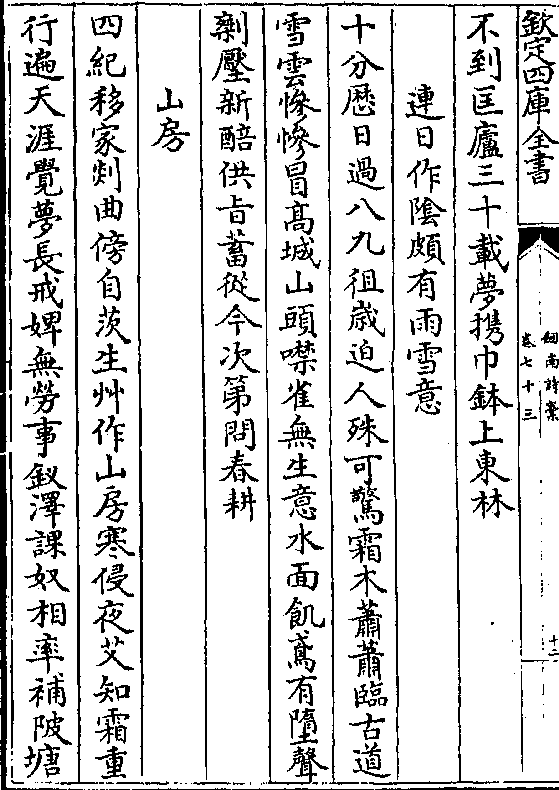 欽定四庫全書
劔南詩稾
卷七十三
十二
不到匡廬三十載夢携巾鉢上東林
連日作隂頗有雨雪意
十分歴日過八九徂歳迫人殊可驚霜木蕭蕭臨古道
雪雲慘慘冒髙城山頭噤雀無生意水面飢鳶有墮聲
剰壓新醅供㫖蓄從今次第問春耕
山房
四紀移家剡曲傍自茨生艸作山房寒侵夜艾知霜重
行遍天涯覺夢長戒婢無勞事釵澤課奴相率補陂塘